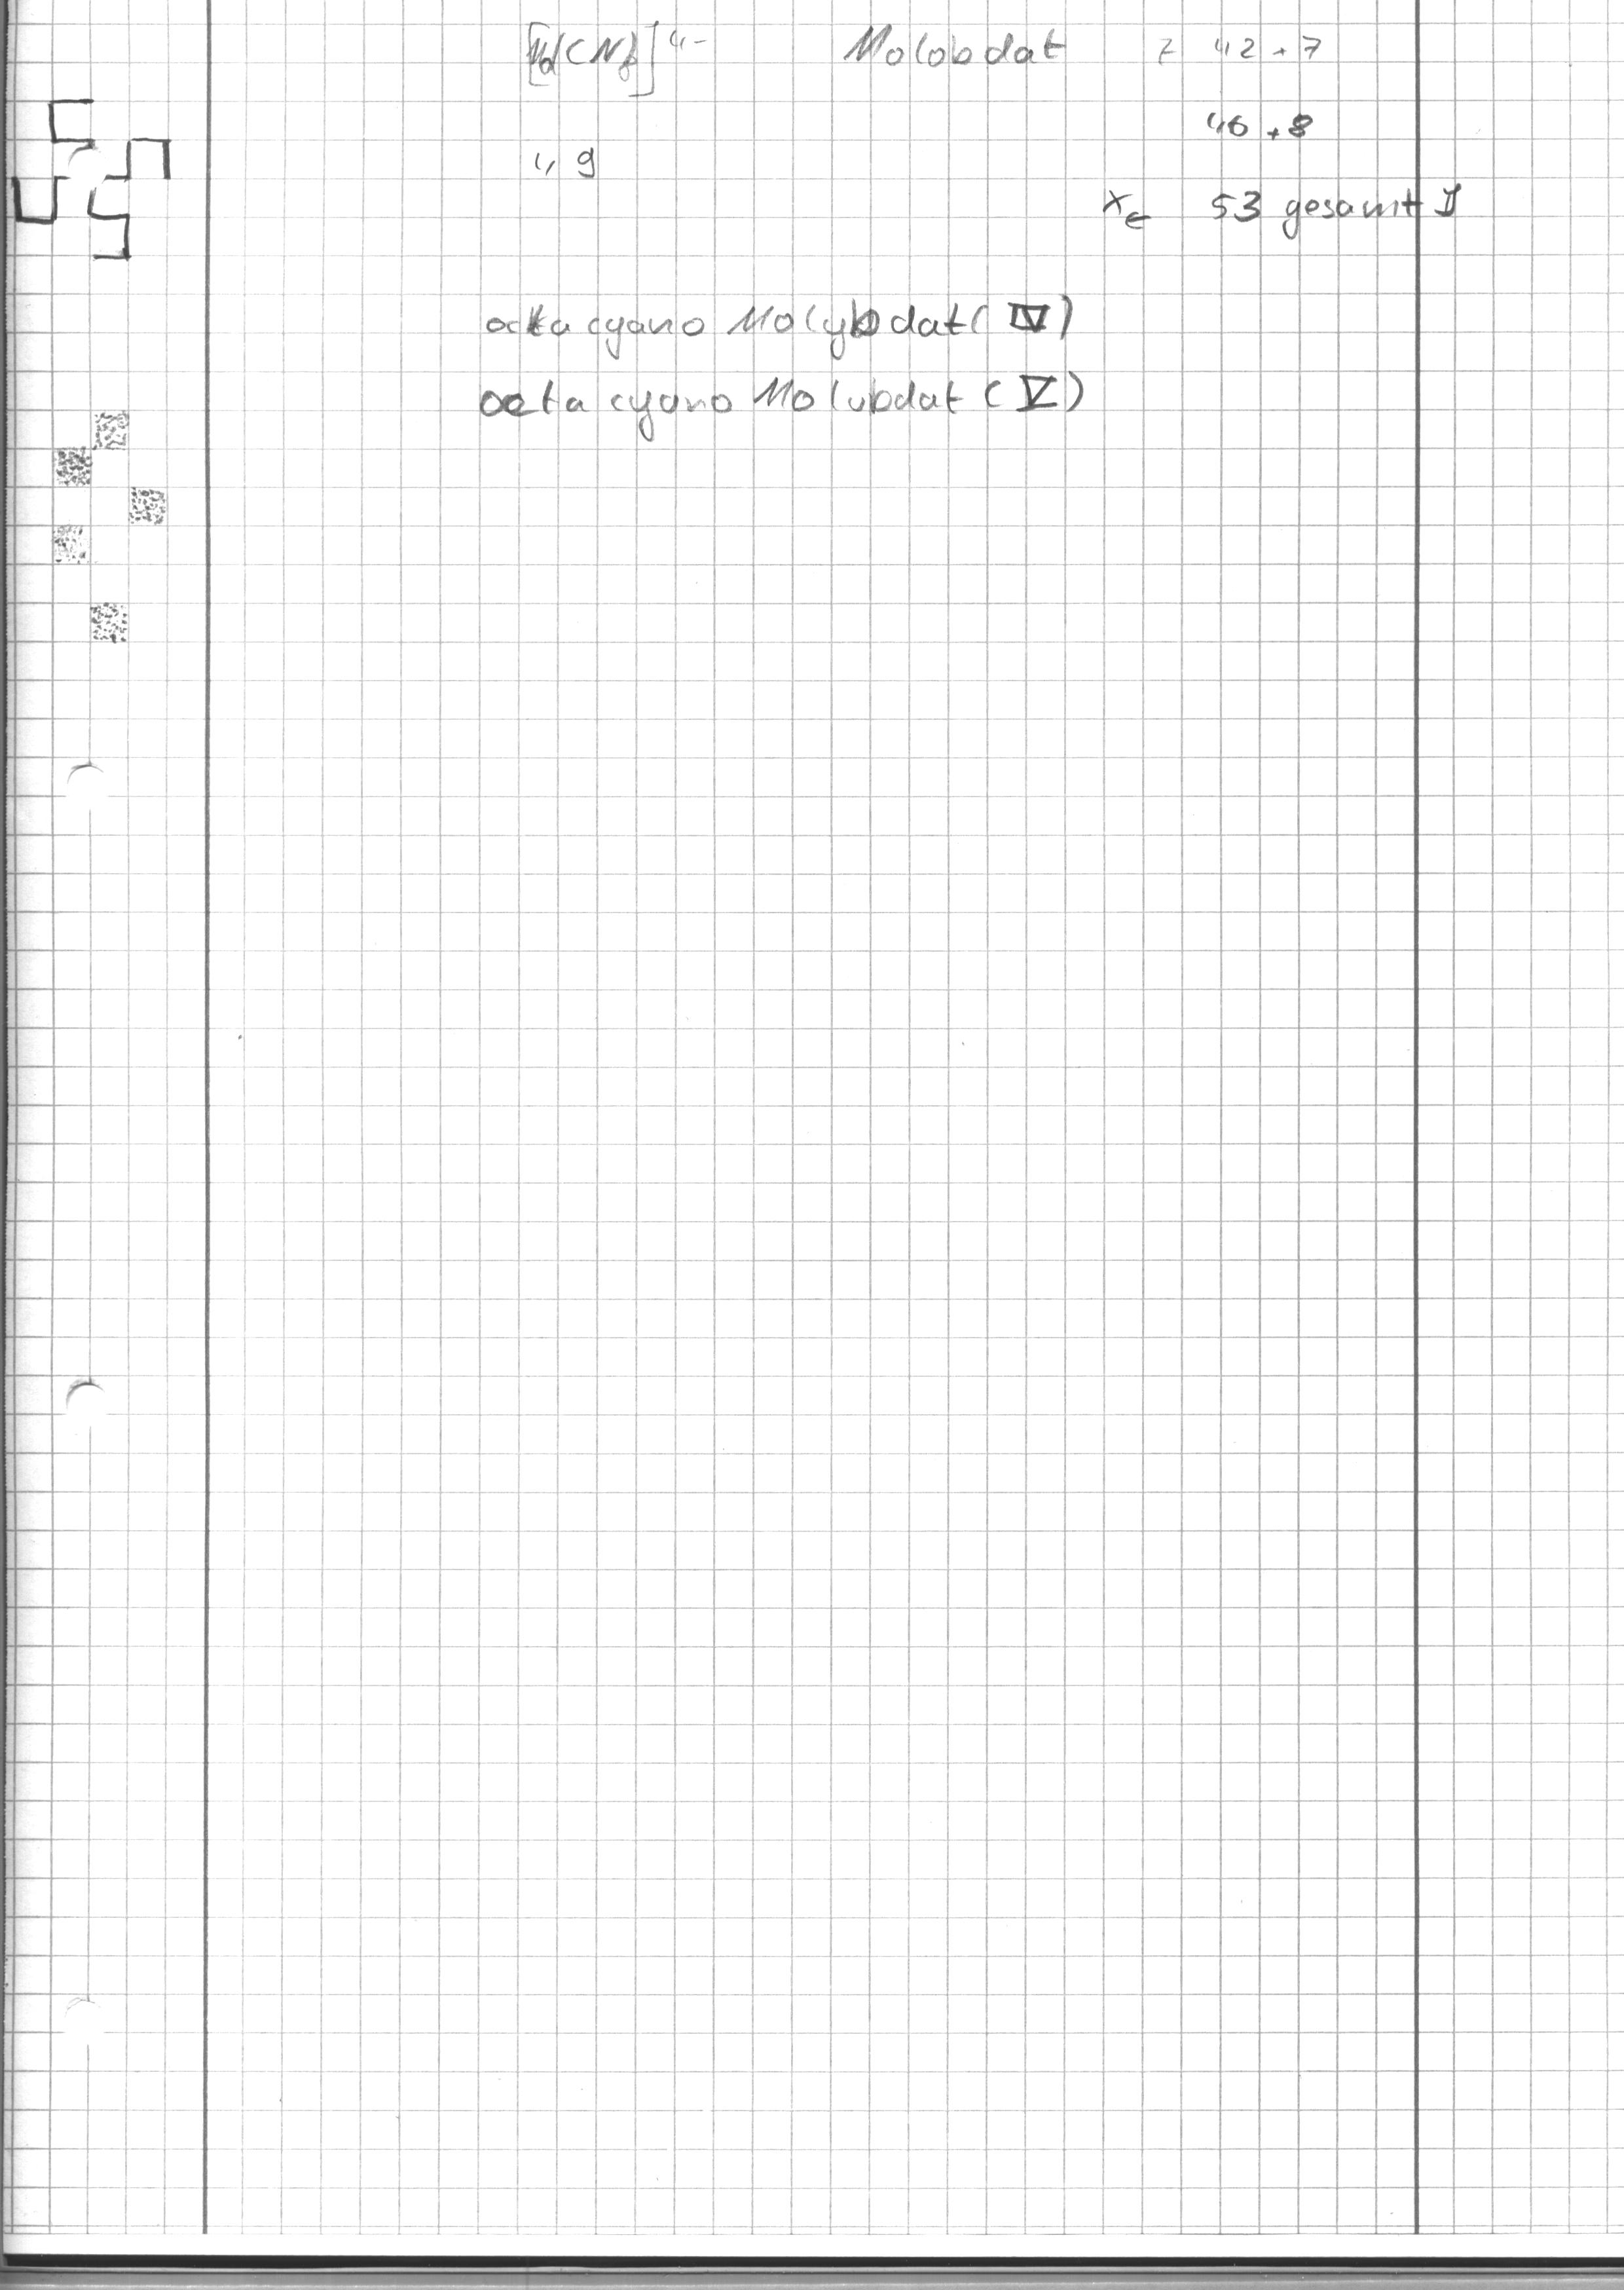 [Mo(CN)8]4- Molobdat Z 42 + 7
46 + 8
49
Xe 53 gesamt I
octa cyano Molybdat (IV)
octa cyano Molubdat (V)